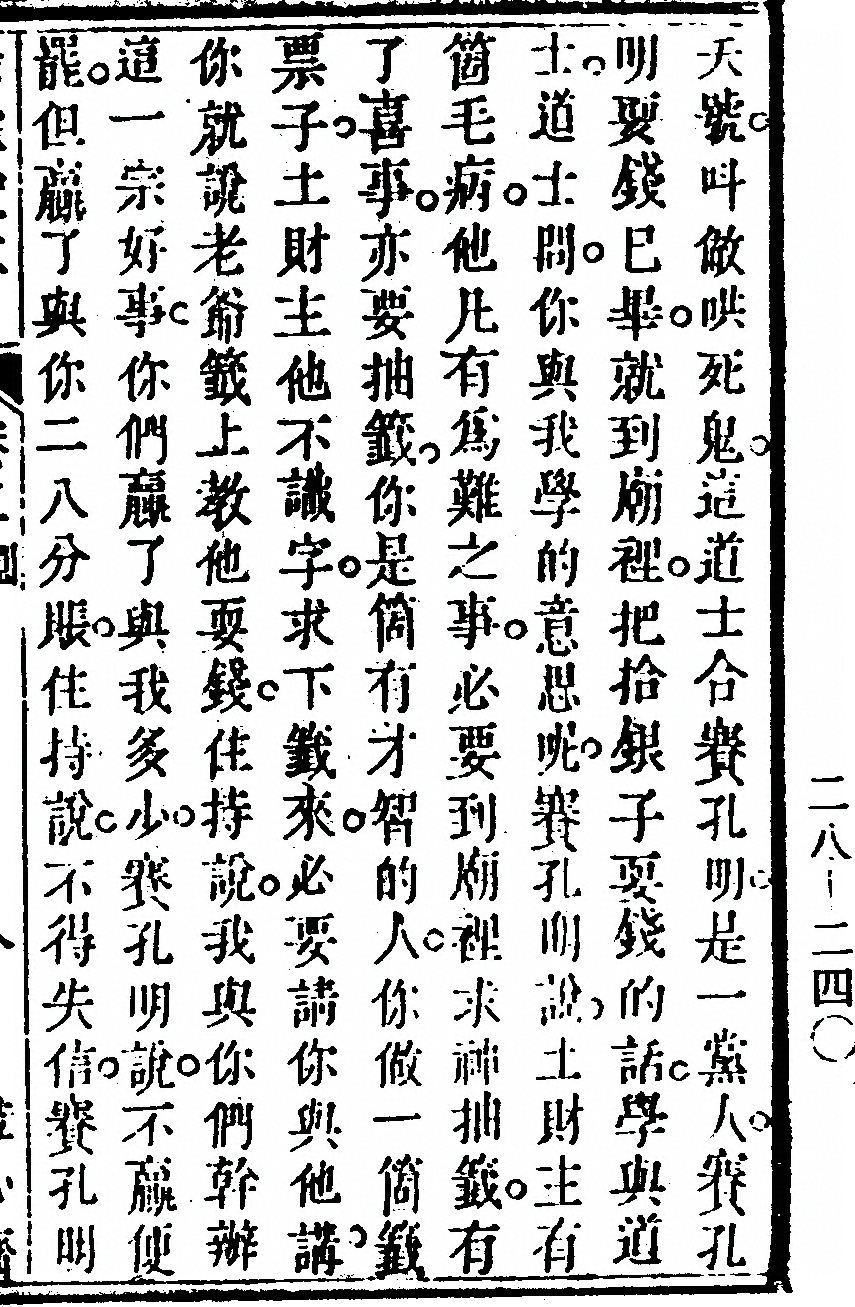 天號。叫做哄死鬼。這道士合賽孔明。是一黨人。賽孔
明耍錢已畢。就到廟裡。把拾銀子耍錢的話。學與道
士。道士問。你與我學的意思呢。賽孔明說。土財主有
箇毛病。他凡有爲難之事。必要到廟裡求神抽籤。有
了喜事。亦要抽籤。你是箇有才智的人。你做一箇籤
票子。土財主他不識字。求下籤來。必要請你與他講。
你就說老爺籤上教他耍錢。住持說。我與你們幹辦
這一宗好事。你們贏了與我多少。賽孔明說。不贏便
罷。但贏了與你二八分賬。住持說。不得失信。賽孔明
二八—二四〇